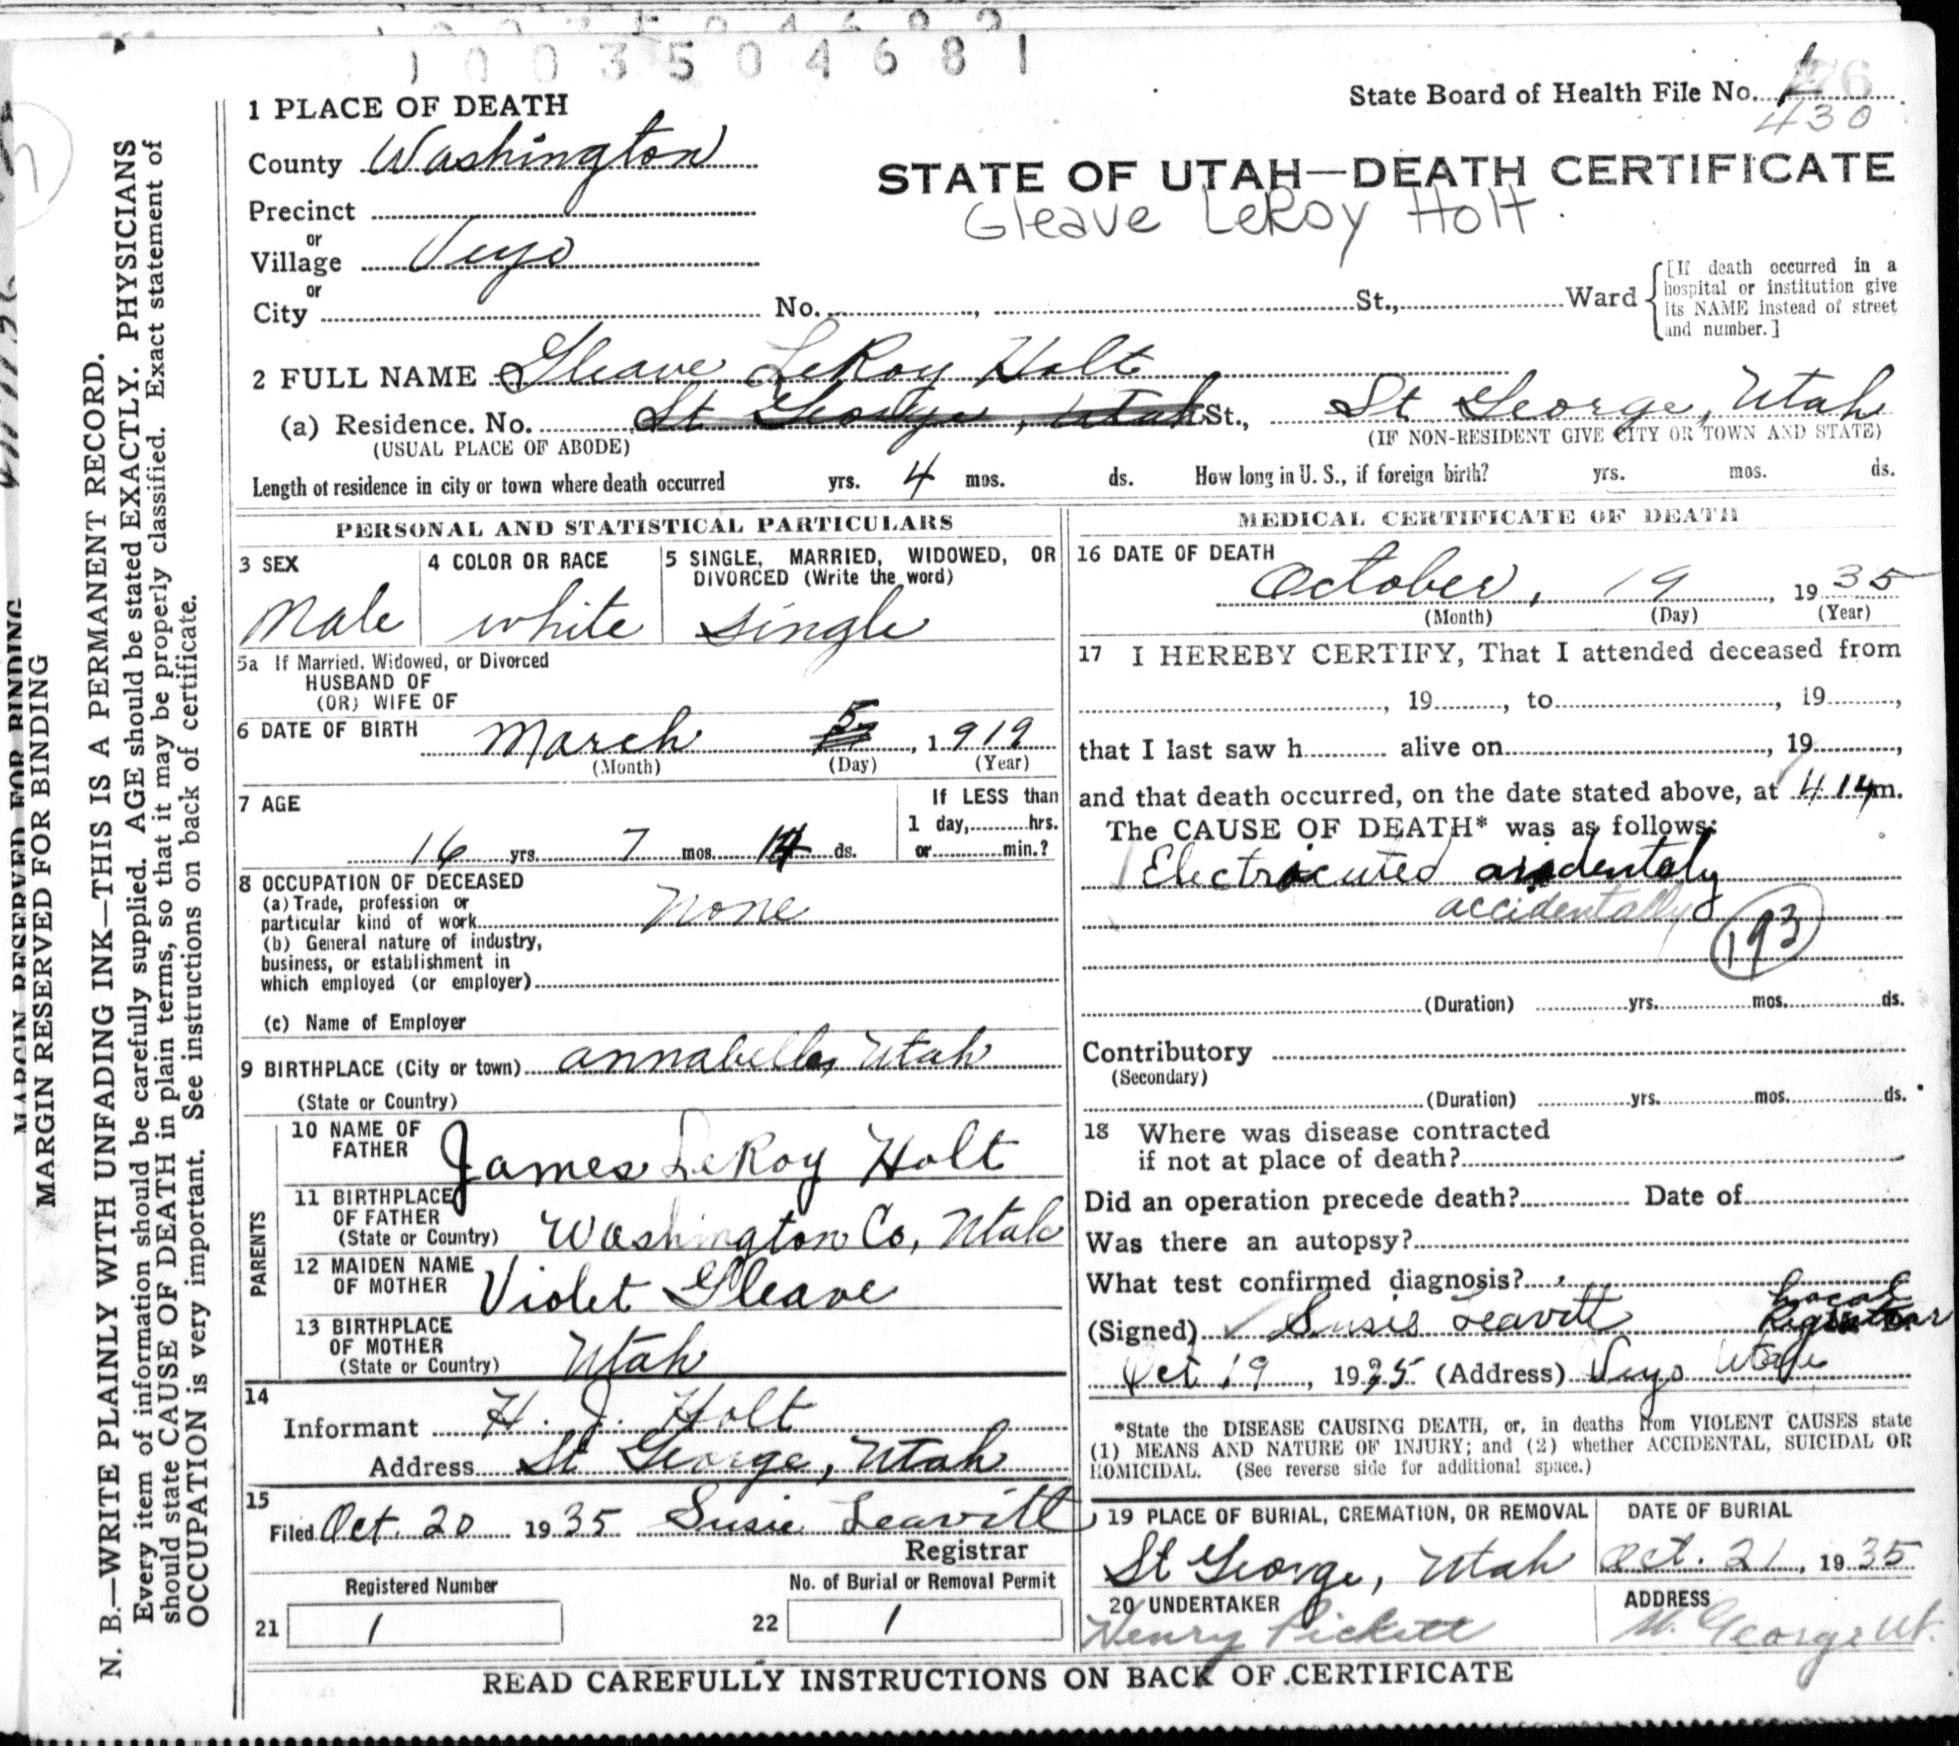 1003504681
State Board of Health File No.
430
1 PLACE OF DEATH
County Washington
STATE OF UTAH—DEATH CERTIFICATE
Precinct
Gleave LeRoy Holt.
or
Village Veyo
or
City No. , St., Ward
[If death occurred in a
hospital or institution give
its NAME instead of street
and number.]
2 FULL NAME Gleave LeRoy Holt
(a) Residence. No. St George, Utah St., St George, Utah
(USUAL PLACE OF ABODE) (IF NON-RESIDENT GIVE CITY OR TOWN AND STATE)
Length of residence in city or town where death occurred yrs. 4 mos. ds. How long in U. S., if foreign birth? yrs. mos. ds.
PERSONAL AND STATISTICAL PARTICULARS
3 SEX
Male
4 COLOR OR RACE
white
5 SINGLE, MARRIED, WIDOWED, OR
DIVORCED (Write the word)
single
5a If Married, Widowed, or Divorced
HUSBAND OF
(OR) WIFE OF
6 DATE OF BIRTH March 5, 1919
(Month) (Day) (Year)
7 AGE
16 yrs. 7 mos. 14 ds.
If LESS than
1 day, hrs.
or min.?
8 OCCUPATION OF DECEASED
(a) Trade, profession or
particular kind of work None
(b) General nature of industry,
business, or establishment in
which employed (or employer)
(c) Name of Employer
9 BIRTHPLACE (City or town) annabella, Utah
(State or Country)
PARENTS
10 NAME OF
FATHER James LeRoy Holt
11 BIRTHPLACE
OF FATHER
(State or Country) Washington Co, Utah
12 MAIDEN NAME
OF MOTHER Violet Gleave
13 BIRTHPLACE
OF MOTHER
(State or Country) Utah
14
Informant H. J. Holt
Address St George, Utah
15
Filed Oct. 20 1935 Susie Leavitt
Registrar
Registered Number No. of Burial or Removal Permit
21 1 22 1
MEDICAL CERTIFICATE OF DEATH
16 DATE OF DEATH
October, 19, 1935
(Month) (Day) (Year)
17 I HEREBY CERTIFY, That I attended deceased from
, 19 , to , 19 ,
that I last saw h alive on , 19 ,
and that death occurred, on the date stated above, at 4 14 m.
The CAUSE OF DEATH* was as follows:
Electrocuted
accidentally
193
(Duration) yrs. mos. ds.
Contributory
(Secondary)
(Duration) yrs. mos. ds.
18 Where was disease contracted
if not at place of death?
Did an operation precede death? Date of
Was there an autopsy?
What test confirmed diagnosis?
(Signed) Susie Leavitt Local
Registrar
Oct 19, 1935 (Address) Veyo Utah
*State the DISEASE CAUSING DEATH, or, in deaths from VIOLENT CAUSES state
(1) MEANS AND NATURE OF INJURY; and (2) whether ACCIDENTAL, SUICIDAL OR
HOMICIDAL. (See reverse side for additional space.)
19 PLACE OF BURIAL, CREMATION, OR REMOVAL
St George, Utah
DATE OF BURIAL
Oct. 21, 1935
20 UNDERTAKER
Henry Pickett
ADDRESS
St. George Ut.
READ CAREFULLY INSTRUCTIONS ON BACK OF CERTIFICATE
MARGIN RESERVED FOR BINDING
MARGIN RESERVED FOR BINDING
N. B.—WRITE PLAINLY WITH UNFADING INK—THIS IS A PERMANENT RECORD.
Every item of information should be carefully supplied. AGE should be stated EXACTLY. PHYSICIANS
should state CAUSE OF DEATH in plain terms, so that it may be properly classified. Exact statement of
OCCUPATION is very important. See instructions on back of certificate.